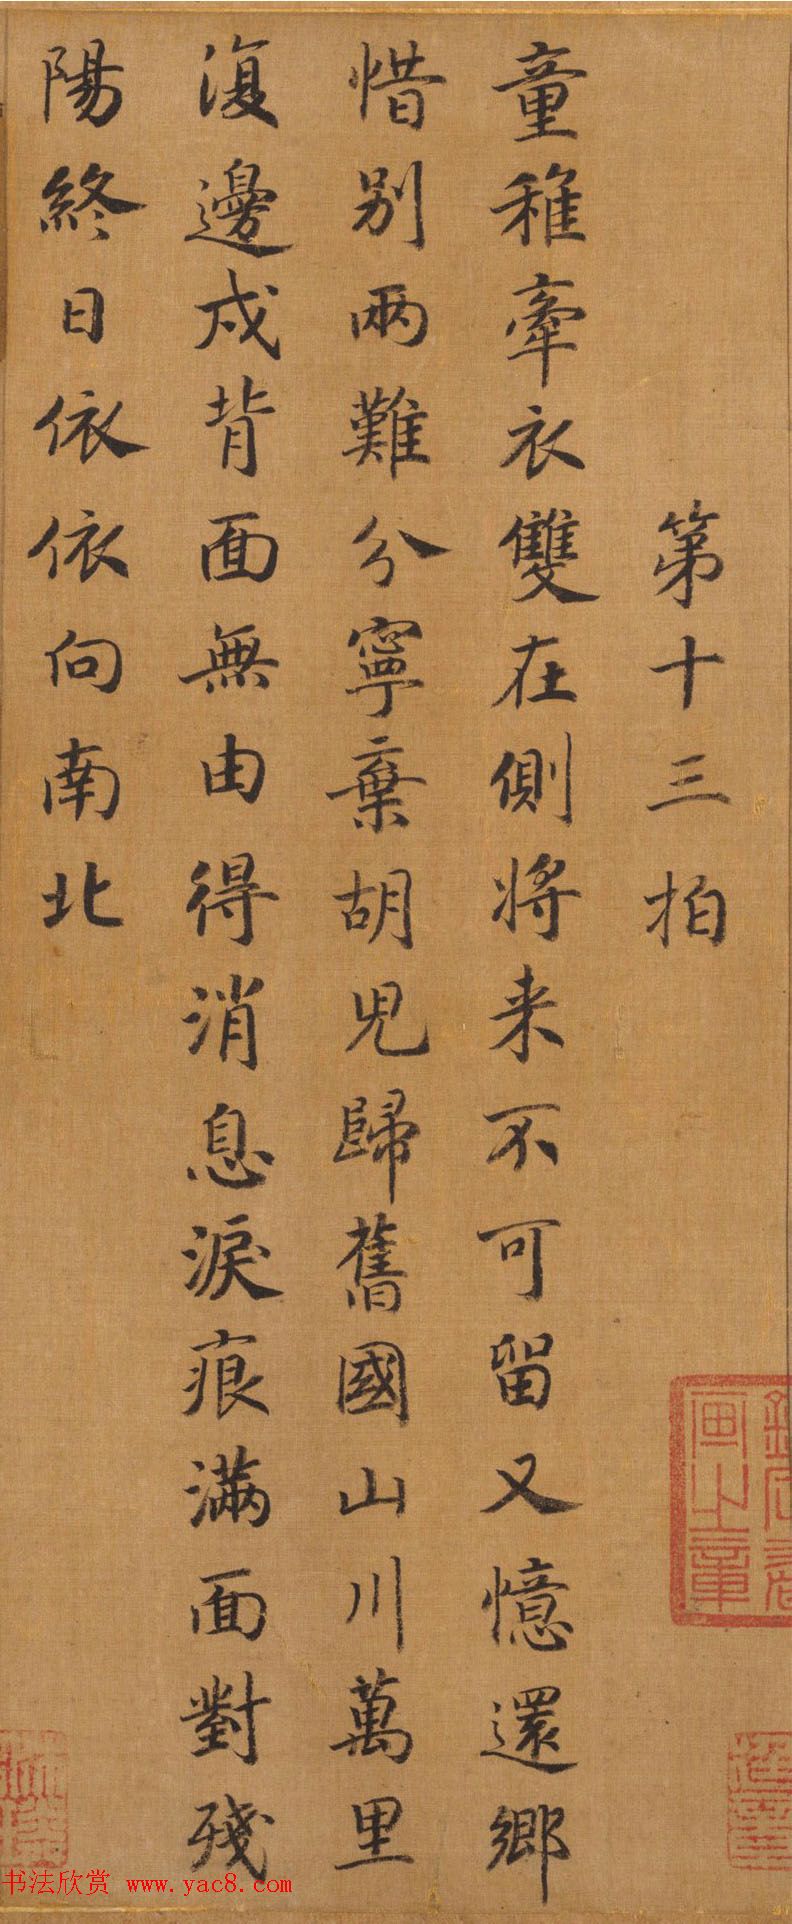 第十三拍
童稚牽衣雙在側將来不可留又憶還鄉
惜别兩難分寧棄胡兒歸舊國山川萬里
復邊戍背面無由得消息淚痕滿面對殘
陽終日依依向南北
书法欣赏 www.yac8.com